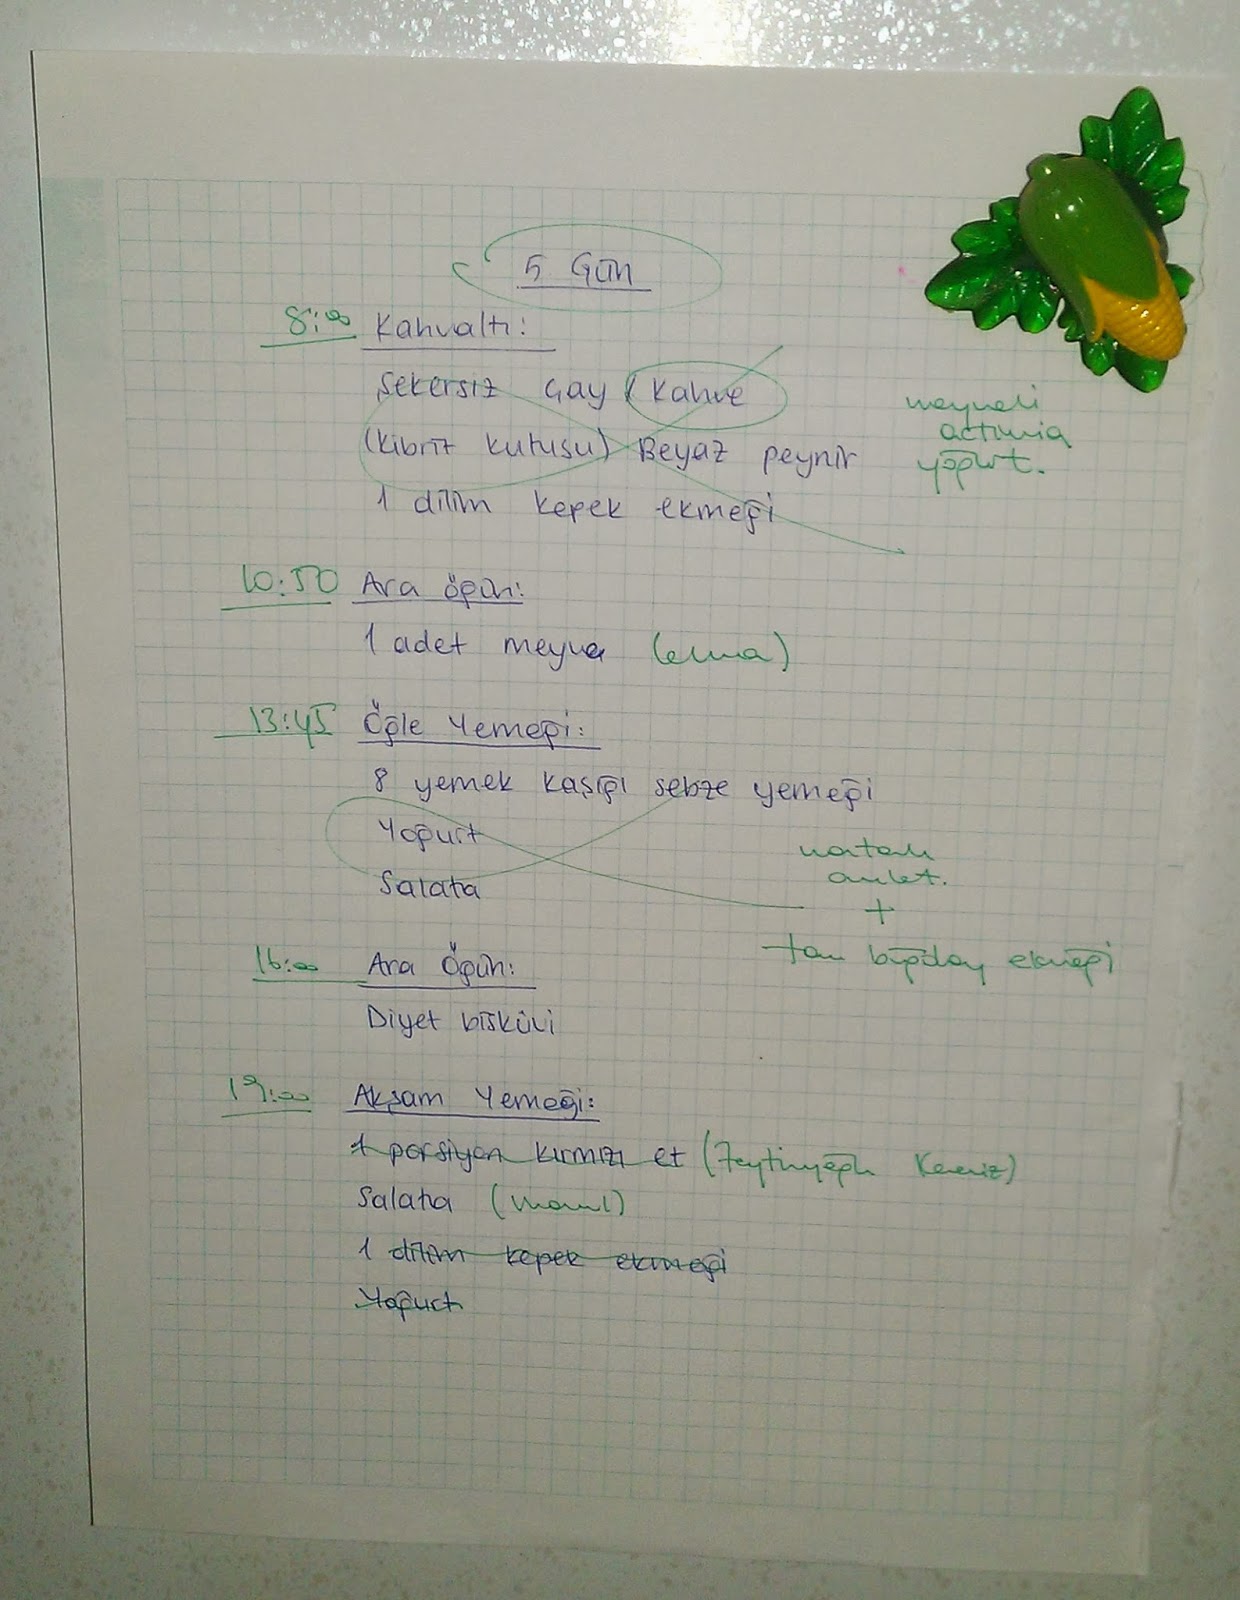 5 Gün
8:00 Kahvaltı:
Şekersiz Çay / Kahve
(Kibrit kutusu) Beyaz peynir
meyveli
activia
yoğurt.
1 dilim kepek ekmeği
10:50 Ara öğün:
1 adet meyve (elma)
13:45 Öğle Yemeği:
8 yemek kaşığı sebze yemeği
Yoğurt
Salata
omlet.
+
tam buğday ekmeği
16:00 Ara Öğün:
Diyet bisküvi
19:00 Akşam Yemeği:
1 porsiyon kırmızı et (Zeytinyağlı Kereviz)
Salata (marul)
1 dilim kepek ekmeği
Yoğurt